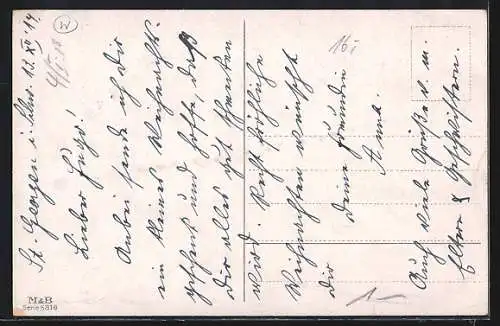 St. Georgen i. Schw. 13. XII. 14.
Lieber Hugo!
Anbei sende ich dir
ein kleines Weihnachts-
geschenk und hoffe, daß
dir alles gut schmecken
wird. Recht fröhliche
Weihnachten wünscht
dir
deine Freundin
Anna.
Auch viele Grüße v. m.
Eltern & Geschwistern.
W
16.-
1.-
M&B
Serie 5310